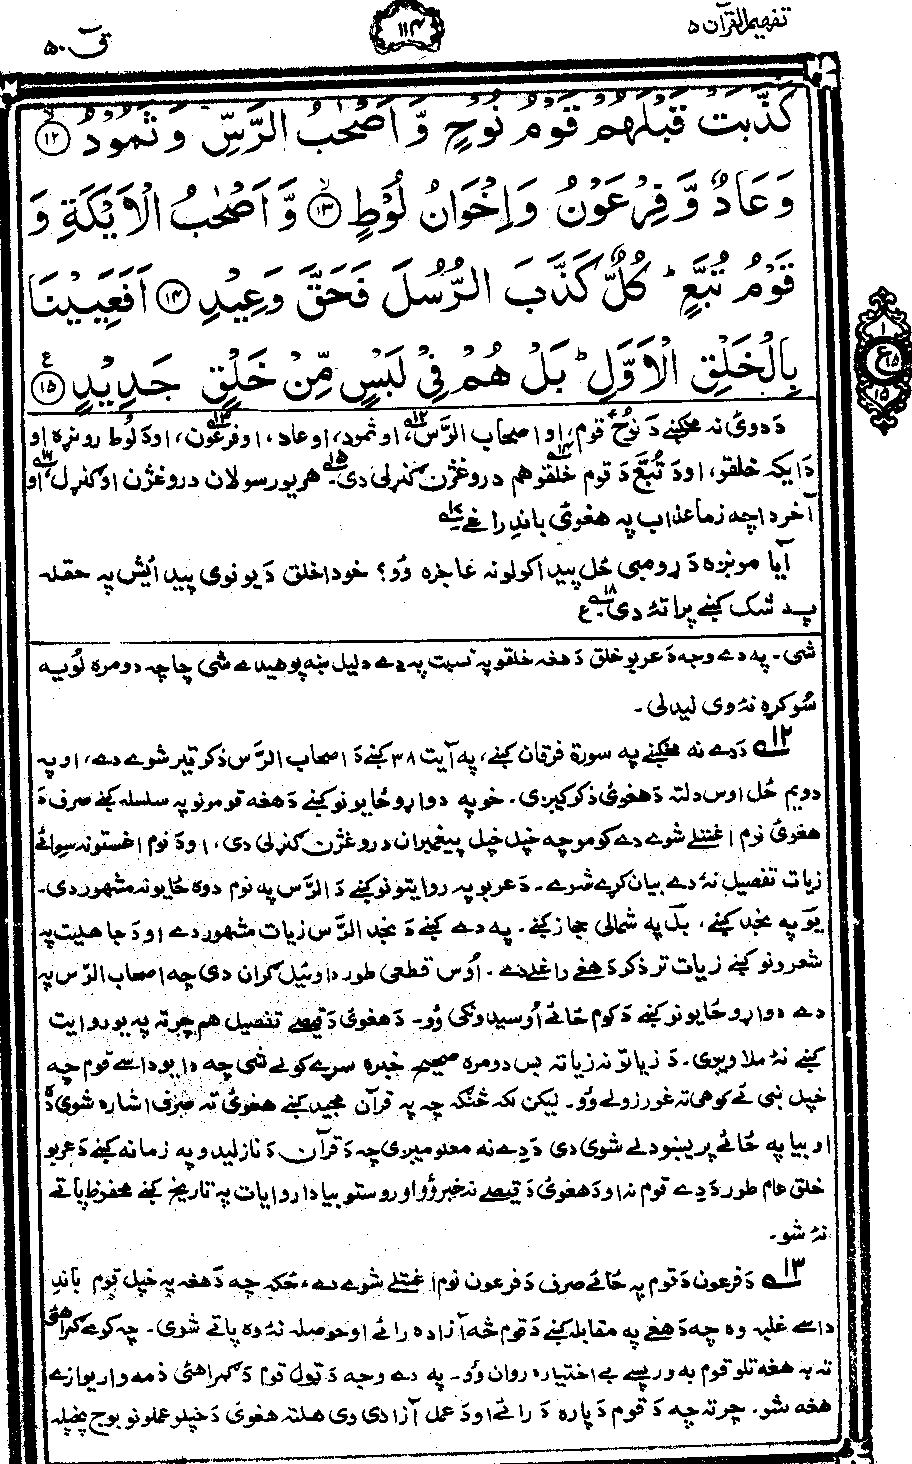 تفهیم القرآن ۵
۱۱۴
قٓ ۵۰
كَذَّبَتْ قَبْلَهُمْ قَوْمُ نُوْحٍ وَّ اَصْحٰبُ الرَّسِّ وَ ثَمُوْدُ ۙ﴿۱۲﴾
وَ عَادٌ وَّ فِرْعَوْنُ وَ اِخْوَانُ لُوْطٍ ۙ﴿۱۳﴾ وَّ اَصْحٰبُ الْاَيْكَةِ وَ
قَوْمُ تُبَّعٍ ؕ كُلٌّ كَذَّبَ الرُّسُلَ فَحَقَّ وَعِيْدِ ﴿۱۴﴾ اَفَعَيِيْنَا
بِالْخَلْقِ الْاَوَّلِ ؕ بَلْ هُمْ فِيْ لَبْسٍ مِّنْ خَلْقٍ جَدِيْدٍ ﴿۱۵﴾ ع
ع ۱ ۱۵ ۱۵
دَ دوئ نه مخکښے دَ نوحؑ قوم، او اصحاب الرَّس ۱۲، او ثمود، او عاد، او فرعون ۱۳، او دَ لُوط روڼړه او
دَ ایکه خلقو، او دَ تُبَّع ۱۴ دَ قوم خلقو هم دروغژن کنړلی دی ۱۵۔ هر یو رسولان دروغژن اوکنړل ۱۶، او
آخر دا چه زما عذاب په هغوئ باندِ راغے ۱۷
آیا مونږه دَ ړومبی ځل پیدا کولو نه عاجزه وُو؟ خو دا خلق دَ یو نوی پیدائیش په حقله
په شک کښے پراتهٔ دی ۱۸۔ ع
شی۔ په دے وجه دَ عربو خلق دَ هغه خلقو په نسبت په دے دلیل ښه پوهیدے شی چا چه دومره لویه
سُوکړه نهٔ وی لیدلی۔
۱۲ دَ دے نه مخکښے په سورة فرقان کښے، په آیت ۳۸ کښے دَ اصحاب الرَّس ذکر تیر شوے دے، او په
دویم ځل اوس دلته دَ هغوئ ذکر کیږی۔ خو په دواړو ځایونو کښے دَ هغه قومونو په سلسله کښے صرف دَ
هغوئ نوم اغستلے شوے دے کومو چه خپل خپل پیغمبران دروغژن کنړلی دی، او دَ نوم اغستو نه سِوائے
زیات تفصیل نهٔ دے بیان کړے شوے۔ دَ عربو په روایتونو کښے دَ الرَّس په نوم دوه ځایونه مشهور دی۔
یَو په نجد کښے، بل په شمالی حجاز کښے۔ په دے کښے دَ نجد الرَّس زیات مشهور دے او دَ جاهلیت په
شعرونو کښے زیات تر ذکر دَ هغے راغلے دے۔ اُوس قطعی طور دا وئیل ګران دی چه اصحاب الرَّس په
دے دواړو ځایونو کښے دَ کوم ځائے اُوسیدونکی وُو۔ دَ هغوئ دَ قیصے تفصیل هم چرته په یو روایت
کښے نهٔ ملاویږی۔ دَ زیاتو نه زیاته بس دومره صحیح خبره سړے کولے شی چه دا یو داسے قوم چه
خپل نبی ئے کوهی ته غورزولے وُو۔ لیکن لکه څنګه چه په قرآن مجید کښے هغوئ ته صرف اشاره شوې ده
او بیا په ځائے پریښودلے شوی دی دَ دے نه معلومیږی چه دَ قرآن دَ نازلیدو په زمانه کښے دَ عربو
خلق عام طور دَ دے قوم نه او دَ هغوئ دَ قیصے نه خبر وُو او روستو بیا دا روایات په تاریخ کښے محفوظ پاتے
نهٔ شو۔
۱۳ دَ فرعون دَ قوم په ځائے صرف دَ فرعون نوم اغستلے شوے دے، ځکه چه دَ هغه په خپل قوم باندِ
داسے غلبه وه چه دَ هغے په مقابله کښے دَ قوم څه آزاده رائے او حوصله نهٔ وه پاتے شوی۔ چه کومے ګمراهئ
ته به هغه تلو قوم به ورپسے بے اختیاره روان وُو۔ په دے وجه دَ ټول قوم دَ ګمراهئ ذمه وار یوازے
هغه شو۔ چرته چه دَ قوم دَ پاره دَ رائے او دَ عمل آزادی وی هلته هغوئ دَ خپلو عملونو بوج پخپله